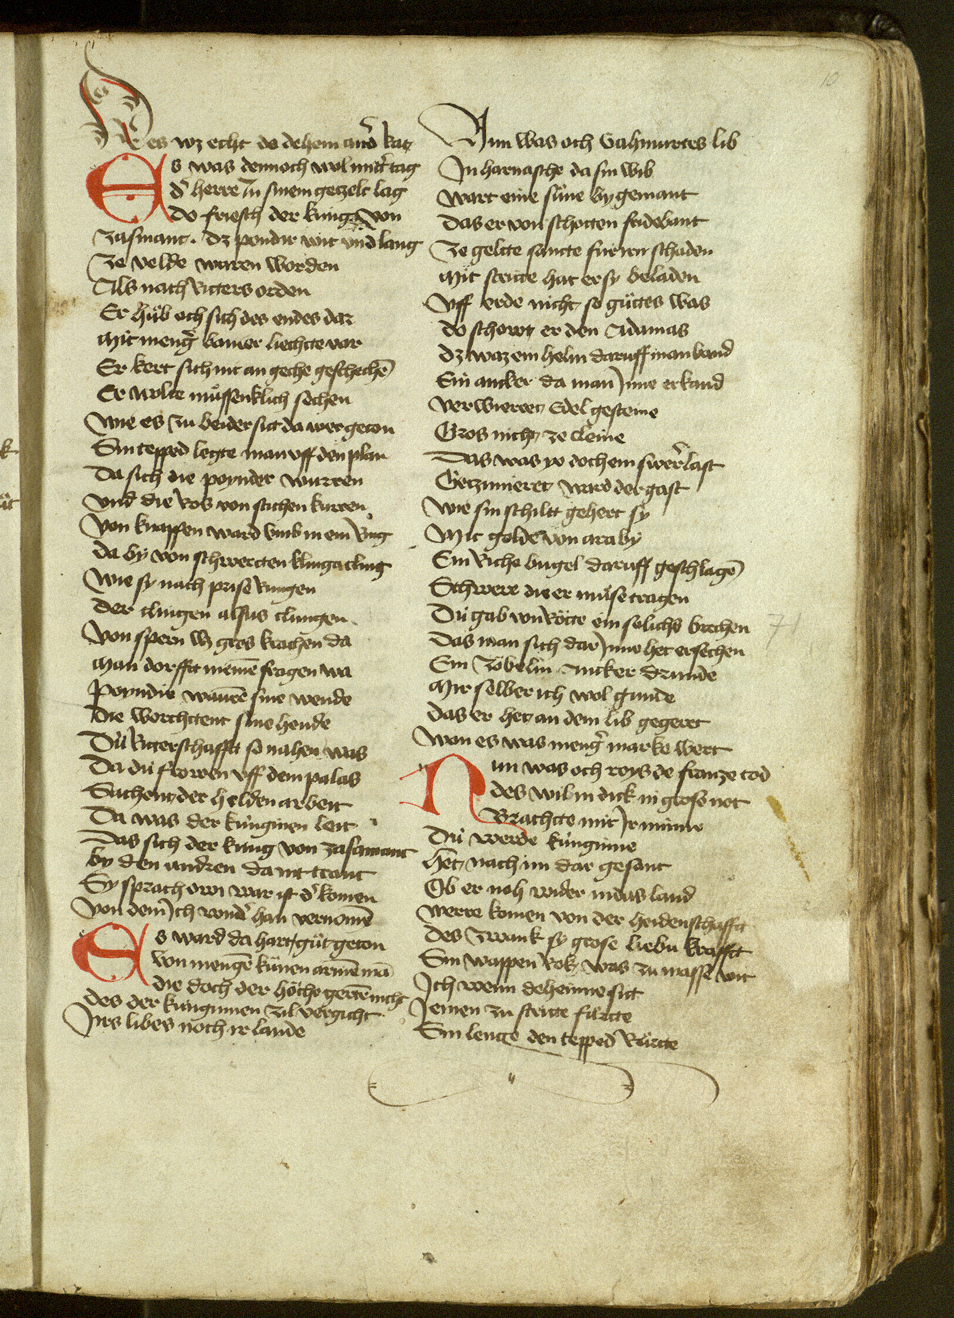 10
Des wz echt do dehein and' kar
Es was dennoch wol mitt' tag
d' herre Jn sinem getzelt lag
do friesch der kung von
Zasmant . dz pondir wit vnd lang
Ze velde waren worden
Als nach Ritters orden
Er hůb och sich des endes dar
Mit meng' baner liechtte var
Er kert sich nit an geche geschechē
Er wolte můssenklich sechen
wie es zu beider sitt da wer geton
Sin tepped legte man vff den plan
Da sich die poynder wurren
vnd die Ros von stichen kurren
von knappen ward vmb in ein Ring
da by von schwertten klinga cling
wie sy nach prise Rungen
der clingen alsus clungen
von spern wz gros krachen da
Man dorfft niemē fragen wa
Poyndir warē sine wende
die worchttent sine hende
Dü Ritterschafft so nahen was
Da dü frowen vff dem palas
Sachent der helden arbeit
Da was der künginen leit
Das sich der kung von zasamant
by den andren da nit trant
Sy sprach owi war ist d' komen
von dem Ich wond' han vernomē
Es ward da hart gůt geton
von mengē künen armē mā
die doch der höche gertē nicht
des der künginnen zil vergicht
Jrs libes noch ir lande
Nun was och Gahmurtes lib
Jn harnasche da sin wib
wart eine süne by gemant
Das er von schotten fridebant
Ze geltte sante für irn schaden
Mit stritte hat er sy beladen
Vff erde nicht so gůttes was
do schowt er den Adamas
dz waz ein helm daruff man band
Ein ancker da man Jnne erkand
verwierret Edel gesteine
Gros nicht ze cleine
Das was yo doch ein swer' last
Getzimieret ward der gast
wie sin schiltt gehert sy
Mit golde von araby
Ein Riche bugel daruff geschlagē
Schwere die er můse tragen
Dü gab von Rötte ein solichs brechen
Das man sich dar Jnne het ersechen
Ein zobelin ancker drunde
Mir selber ich wol gunde
das er het an dem lib gegert
won es was meng' marke wert
Nun was och roys de franze tod
des wil in dick in grose not
Brachtte mit Jr minne
Dü werde künginne
Het nach im dar gesant
Ob er noh wider in das land
werre komen von der heidenschafft
des zwank sy grose liebü krafft
Sin wappen Rok was zu masse wit
Ich wenn deheinne sitt
Jemen zu stritte fürtte
Sin lenge den tepped Rürtte
71